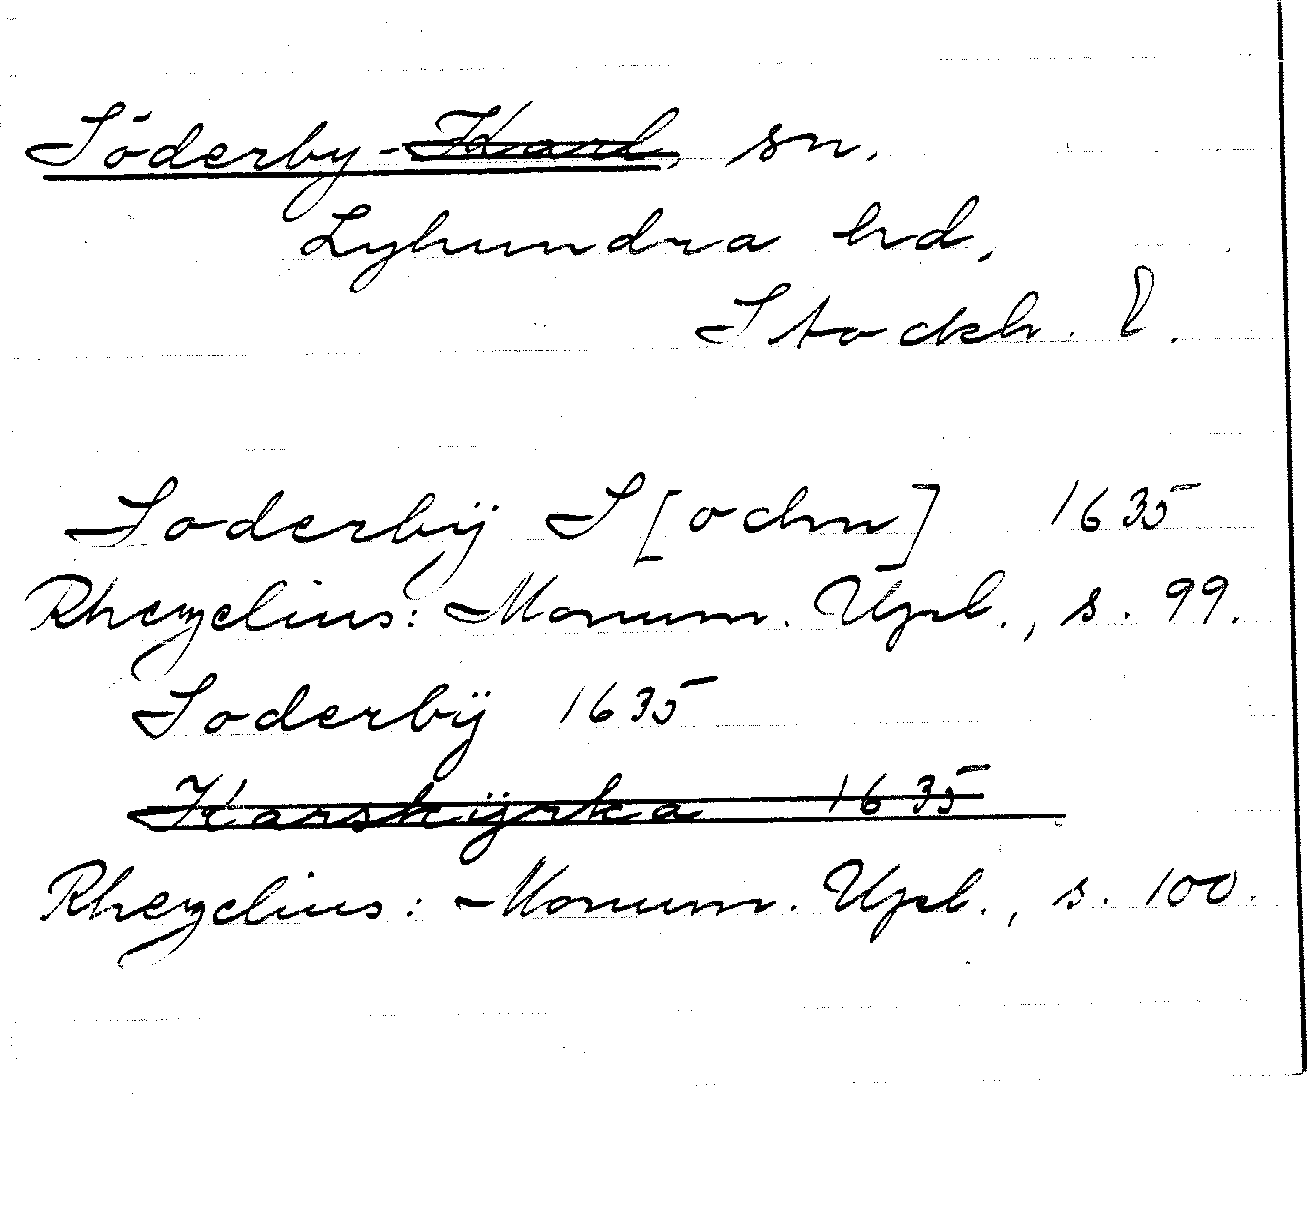 Söderby-Karl, sn.
Lyhundra hd,
Stockh. l.
Soderbÿ S[ochn] 1635
Rhezelius: Monum. Upl., s. 99.
Soderbÿ 1635
Karskÿrka 1635
Rhezelius: Monum. Upl., s. 100.